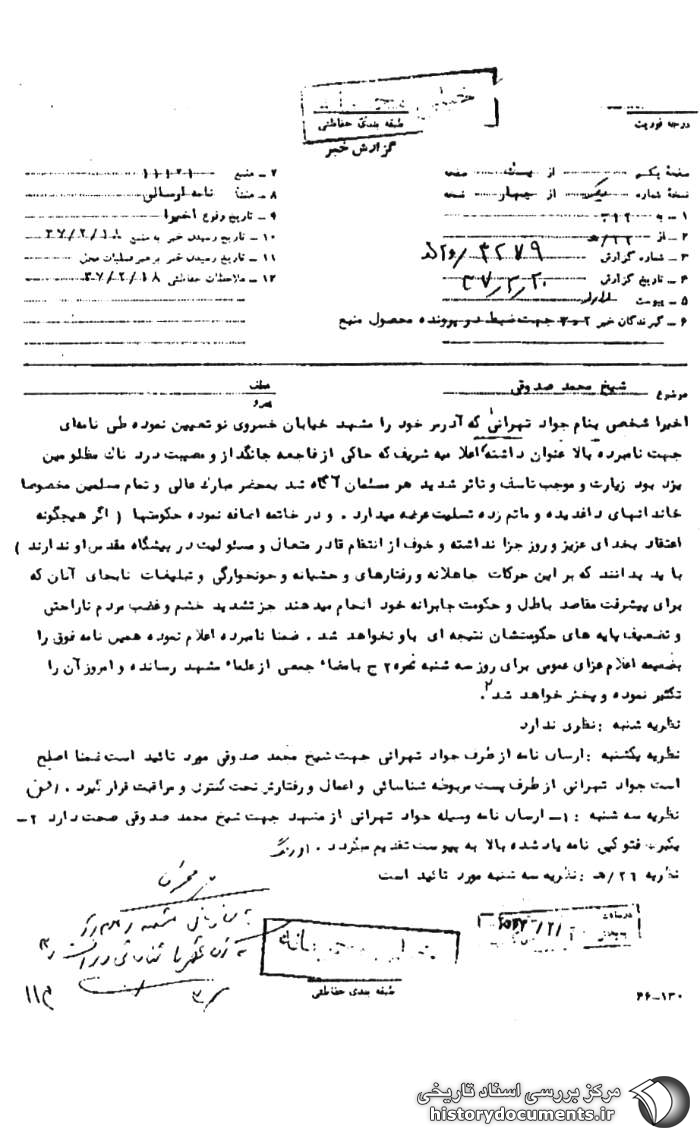 خیلی محرمانه
طبقه بندی حفاظتی
درجه فوریت
گزارش خبر
صفحه یکم از صفحه
نسخه شماره یک از چهار نسخه
۱ – به ۳۱۲
۲ – از ۲۶/ هـ
۳ – شماره گزارش ۳۲۷۹
۴ – تاریخ گزارش ۳۷/۲/۲۰
۵ – پیوست دارد
۶ – گیرندگان خبر ۲۰۳ جهت ضبط در پرونده محصول منبع
۷ – منبع ۱۱۱۲۱
۸ – منشأ نامه ارسالی
۹ – تاریخ وقوع اخیرا
۱۰ – تاریخ رسیدن خبر به منبع ۳۷/۲/۱۸
۱۱ – تاریخ رسیدن خبر برهبر عملیات محل
۱۲ – ملاحظات حفاظتی ۳۷/۲/۱۸
موضوع شیخ محمد صدوقی
عطف
پیرو
اخیرا شخصی بنام جواد تهرانی که آدرس خود را مشهد خیابان خسروی نو تعیین نموده طی نامه‌ای
جهت نامبرده بالا عنوان داشته اعلامیه شریف که حاکی از فاجعه جانگداز و مصیبت درد ناک مظلومین
یزد بود زیارت و موجب تاسف و تاثر شدید هر مسلمان آگاه شد بمحضر مبارک عالی و تمام مسلمین مخصوصا
خاندانهای داغدیده و ماتم زده تسلیت عرضه میدارد . و در خاتمه اضافه نموده حکومتها ( اگر هیچگونه
اعتقاد بخدای عزیز و روز جزا نداشته و خوف از انتقام قادر متعال و مسئولیت در پیشگاه مقدس او ندارند )
باید بدانند که بر این حرکات جاهلانه و رفتارهای وحشیانه و خونخوارگی و تبلیغات نابجای آنان که
برای پیشرفت مقاصد باطل و حکومت جابرانه خود انجام میدهند جز تشدید خشم و غضب مردم ناراحتی
و تضعیف پایه های حکومتشان نتیجه ای بار نخواهد شد . ضمنا نامبرده اعلام نموده همین نامه فوق را
بضمیمه اعلام عزای عمومی برای روز سه شنبه ج بامضاء جمعی از علماء مشهد رسانده و امروز آن را
تکثیر نموده و پخش خواهد شد .
نظریه شنبه : نظری ندارد
نظریه یکشنبه : ارسال نامه از طرف جواد تهرانی جهت شیخ محمد صدوقی مورد تائید است ضمنا اصلح
است جواد تهرانی از طرف پست مربوطه شناسائی و اعمال و رفتارش تحت کنترل و مراقبت قرار گیرد .
نظریه سه شنبه : ۱– ارسال نامه وسیله جواد تهرانی از مشهد جهت شیخ محمد صدوقی صحت دارد ۲–
یکبرگ فتوکپی نامه یادشده بالا به پیوست تقدیم میگردد .
نظریه ۲۶/ هـ : نظریه سه شنبه مورد تائید است
خیلی محرمانه
طبقه بندی حفاظتی
۱۱م
۶۶–۱۳۰
مرکز بررسی اسناد تاریخی
historydocuments.ir